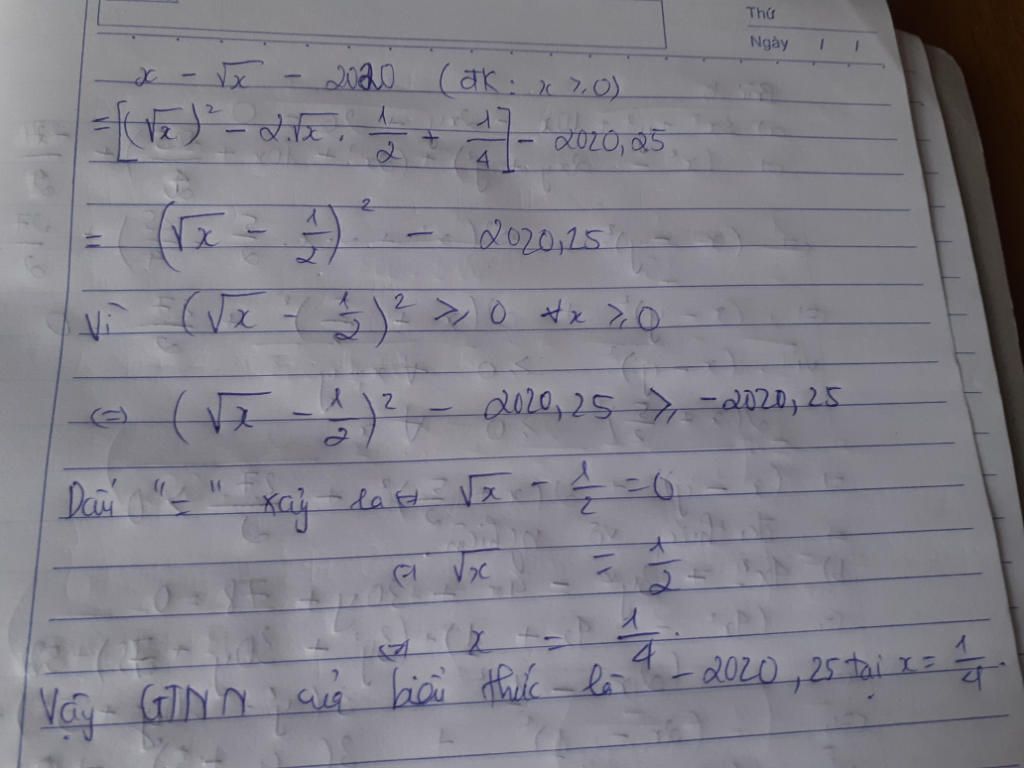 Thứ
Ngày / /
x - √x - 2020 (ĐK: x ≥ 0)
= [(√x)² - 2.√x . 1/2 + 1/4] - 2020,25
= (√x - 1/2)² - 2020,25
Vì (√x - 1/2)² ≥ 0 ∀x ≥ 0
⇔ (√x - 1/2)² - 2020,25 ≥ -2020,25
Dấu "=" xảy ra ⇔ √x - 1/2 = 0
⇔ √x = 1/2
⇔ x = 1/4.
Vậy GTNN của biểu thức là -2020,25 tại x = 1/4.